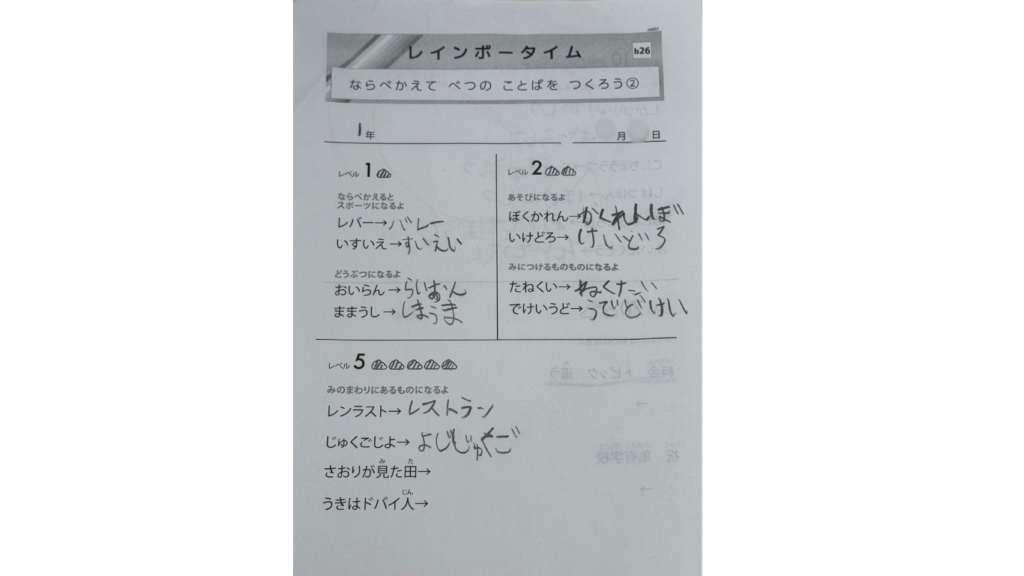 レインボータイム
b26
ならべかえて べつの ことばを つくろう②
1年
月 日
レベル 1
ならべかえると
スポーツになるよ
レバー→バレー
いすいえ→すいえい
どうぶつになるよ
おいらん→らいおん
ままうし→しまうま
レベル 2
あそびになるよ
ぼくかれん→かくれんぼ
いけどろ→けいどろ
みにつけるものものになるよ
たねくい→ねくたい
でけいうど→うでどけい
レベル 5
みのまわりにあるものになるよ
レンラスト→レストラン
じゅくごじよ→よじじゅくご
さおりが見た田→
うきはドバイ人→